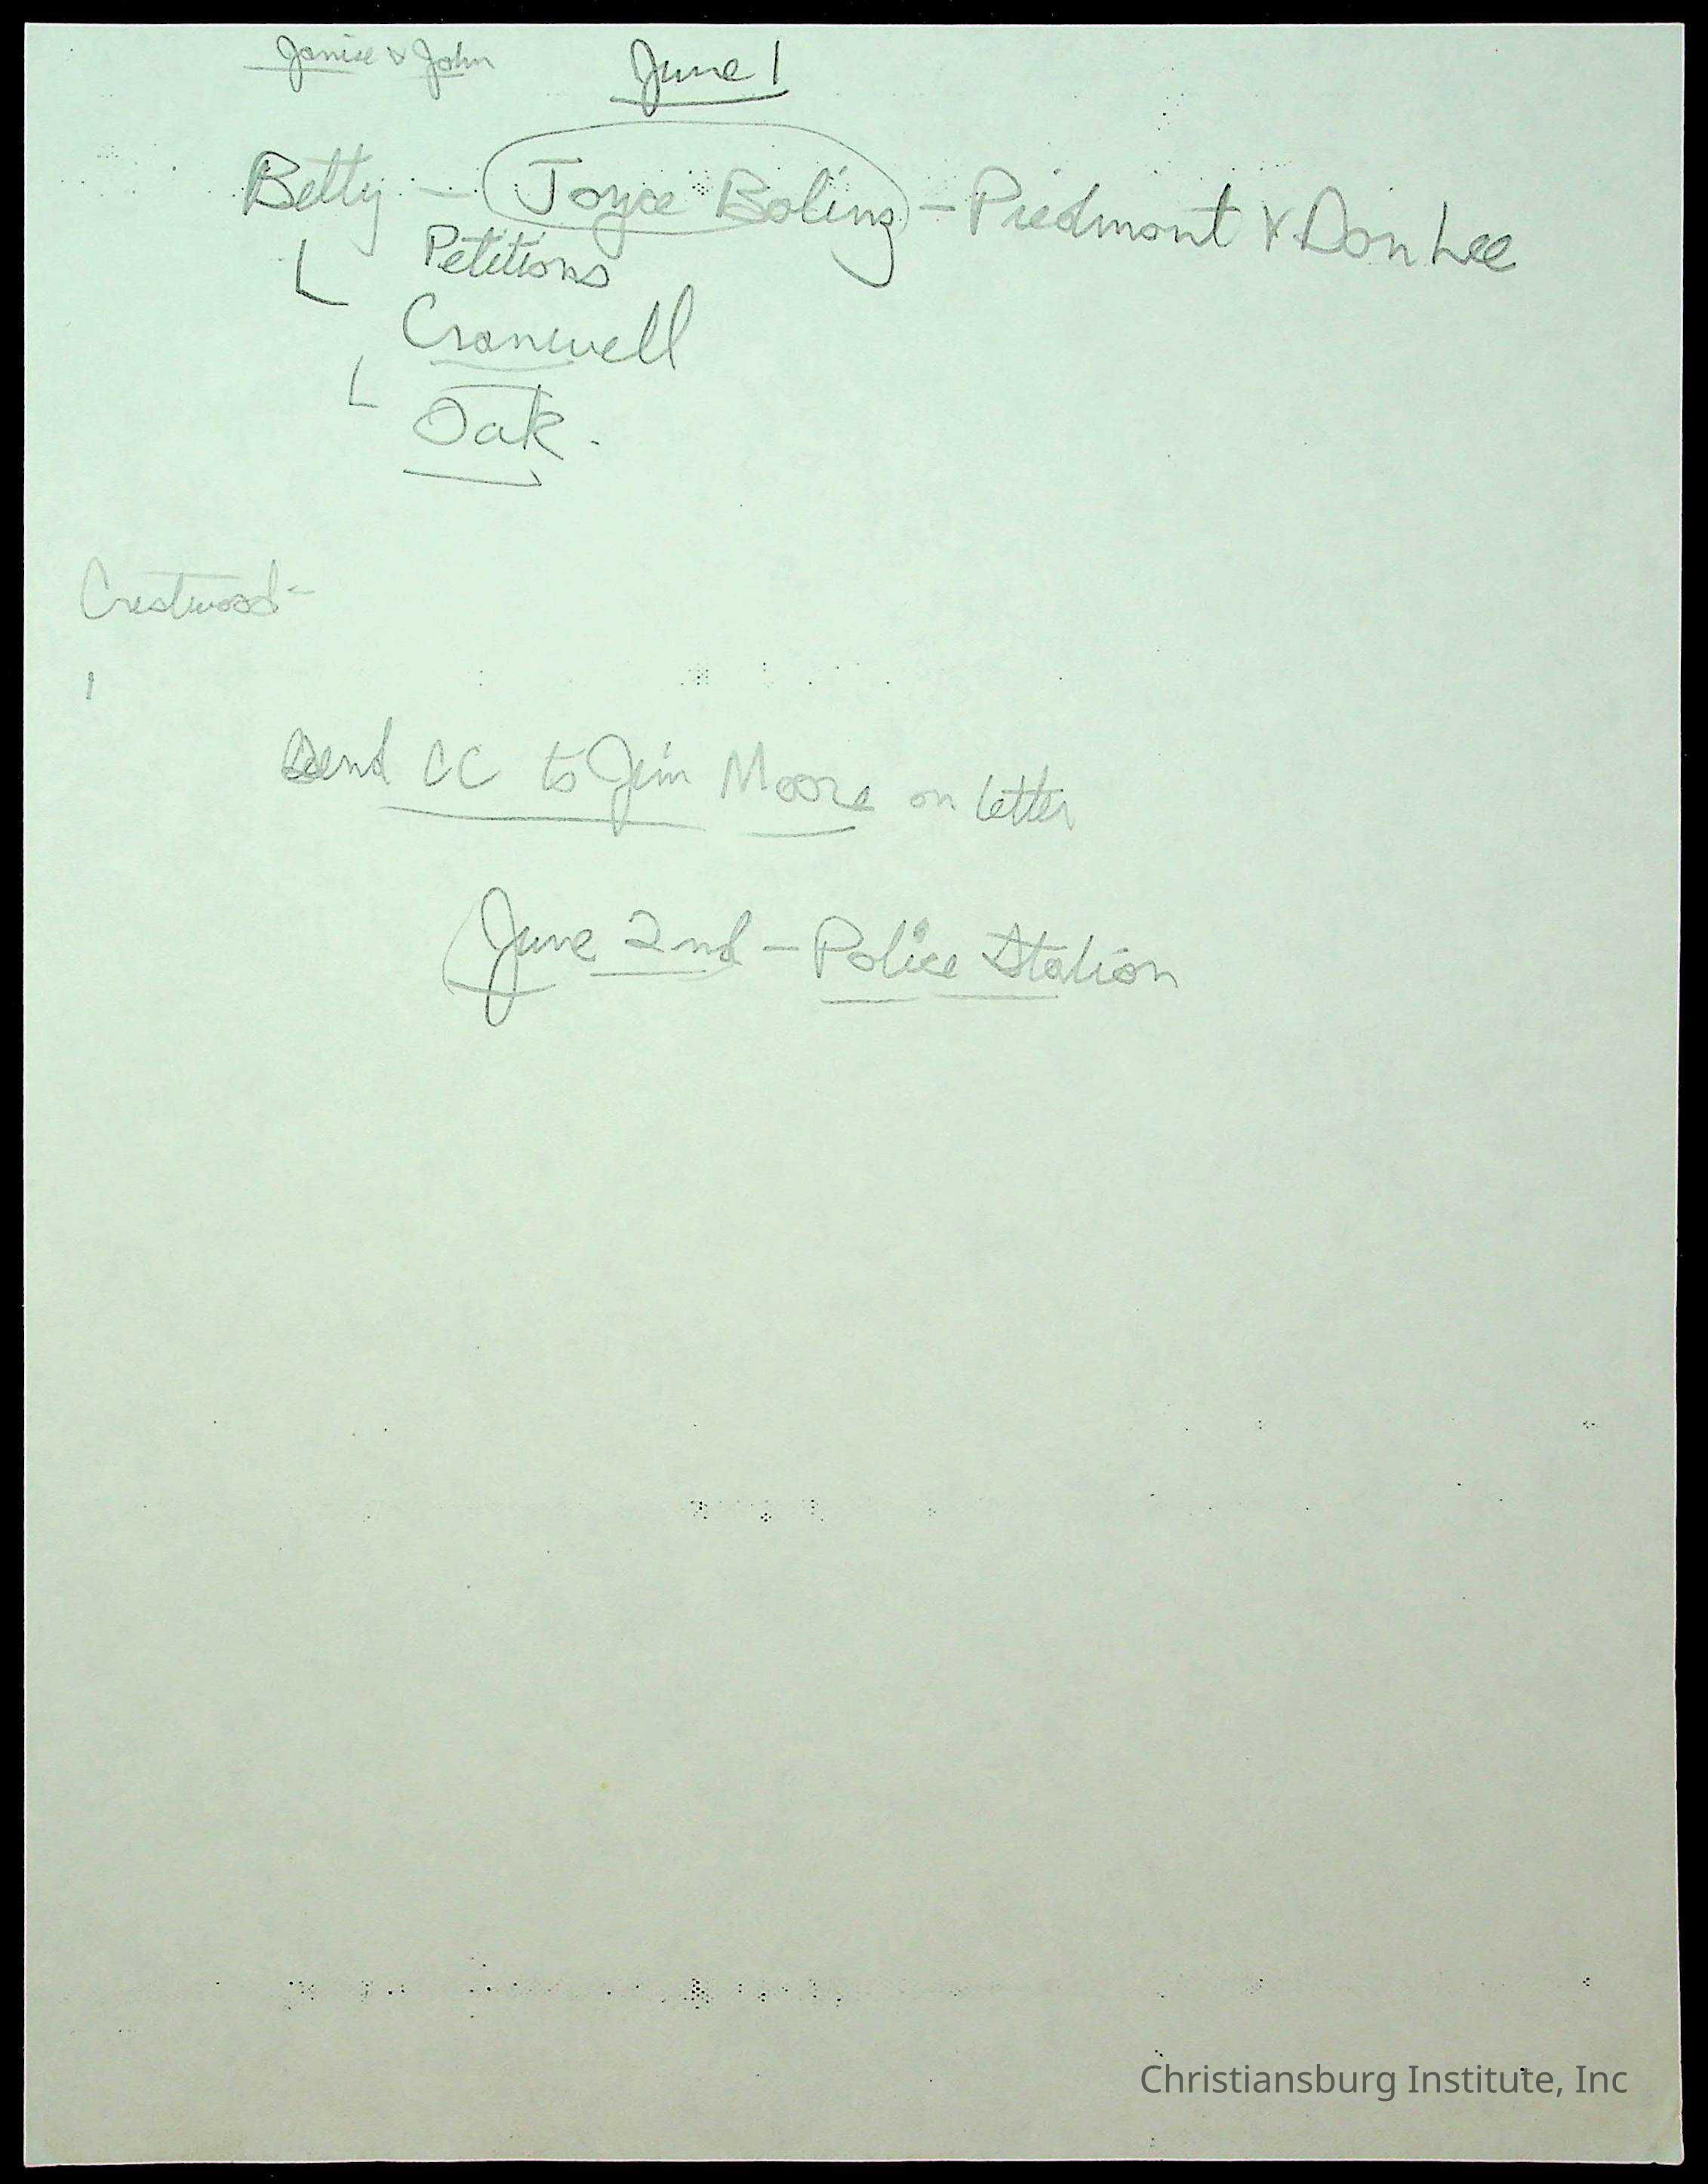 Janice & John
June 1
Betty - Joyce Boling - Piedmont & Don Lee
Petitions
Cranwell
Oak.
Crestwood -
Send CC to Jim Moore on letter
June 2nd - Police Station
Christiansburg Institute, Inc